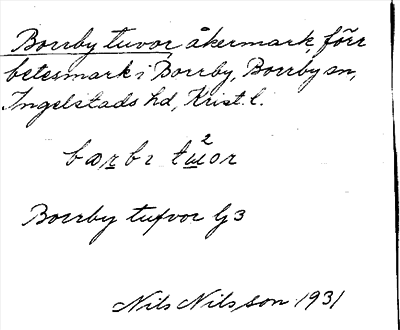 Borrby tuvor, åkermark, förr
betesmark i Borrby, Borrby sn,
Ingelstads hd, Krist. l.
Borrby tufvor G3
Nils Nilsson 1931